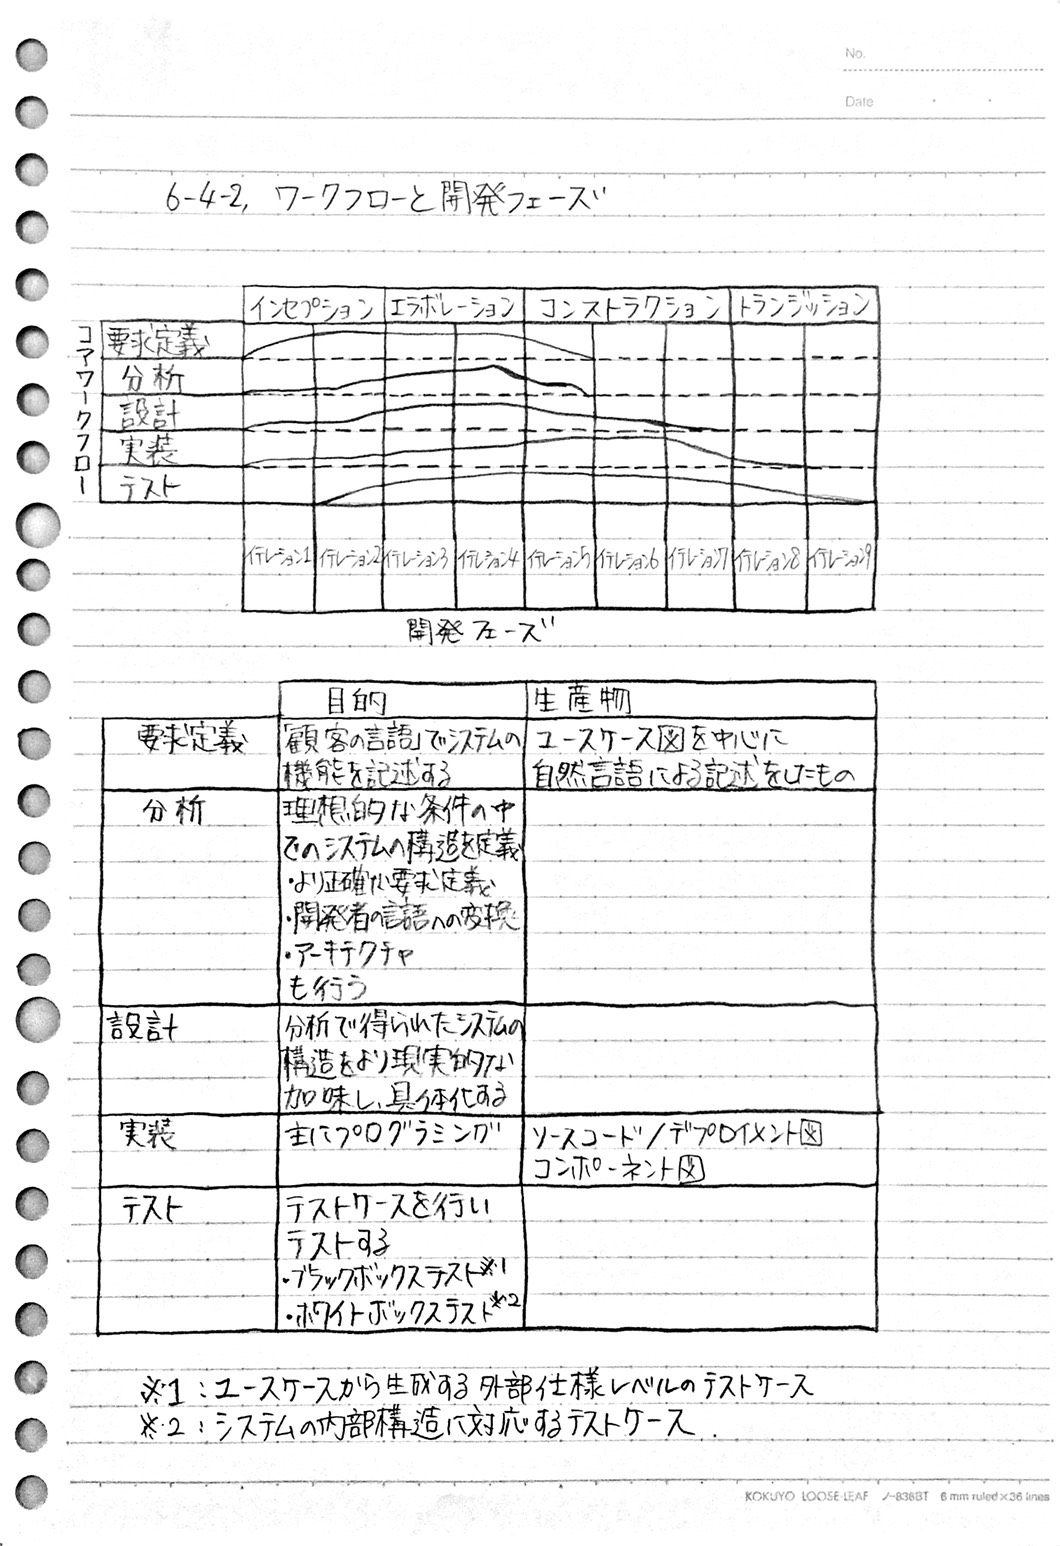 No.
Date
6-4-2, ワークフローと開発フェーズ
インセプション エラボレーション コンストラクション トランジッション
コアワークフロー
要求定義
分析
設計
実装
テスト
イテレーション1 イテレーション2 イテレーション3 イテレーション4 イテレーション5 イテレーション6 イテレーション7 イテレーション8 イテレーション9
開発フェーズ
目的 生産物
要求定義 「顧客の言語」でシステムの ユースケース図を中心に
機能を記述する 自然言語による記述をしたもの
分析 理想的な条件の中
でのシステムの構造を定義
・より正確な要求定義
・開発者の言語への変換
・アーキテクチャ
も行う
設計 分析で得られたシステムの
構造をより現実的な
加味し、具体化する
実装 主にプログラミング ソースコード/デプロイメント図
コンポーネント図
テスト テストケースを行い
テストする
・ブラックボックステスト※1
・ホワイトボックステスト※2
※1:ユースケースから生成する外部仕様レベルのテストケース
※2:システムの内部構造に対応するテストケース.
KOKUYO LOOSE-LEAF ノ-836BT 6 mm ruled×36 lines